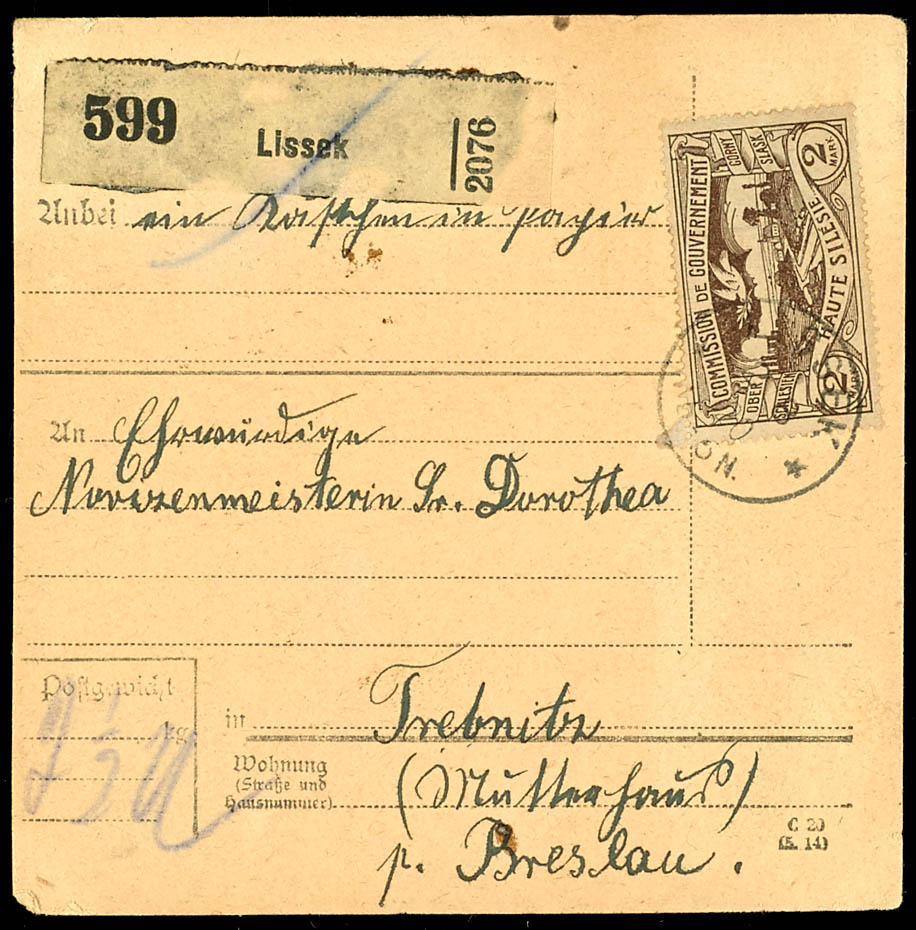 599 Lissek 2076
Anbei ein Kästchen in papier
COMMISSION DE GOUVERNEMENT
HAUTE SILESIE
GORNY
SLASK
OBER
SCHLESIEN
2 MARK
2 MARK
An Ehrwürdige
Novizenmeisterin Sr. Dorothea
Postgewicht
kg
in Trebnitz
Wohnung
(Straße und
Hausnummer)
(Mutterhaus)
p. Breslau.
C 20
(5. 14)